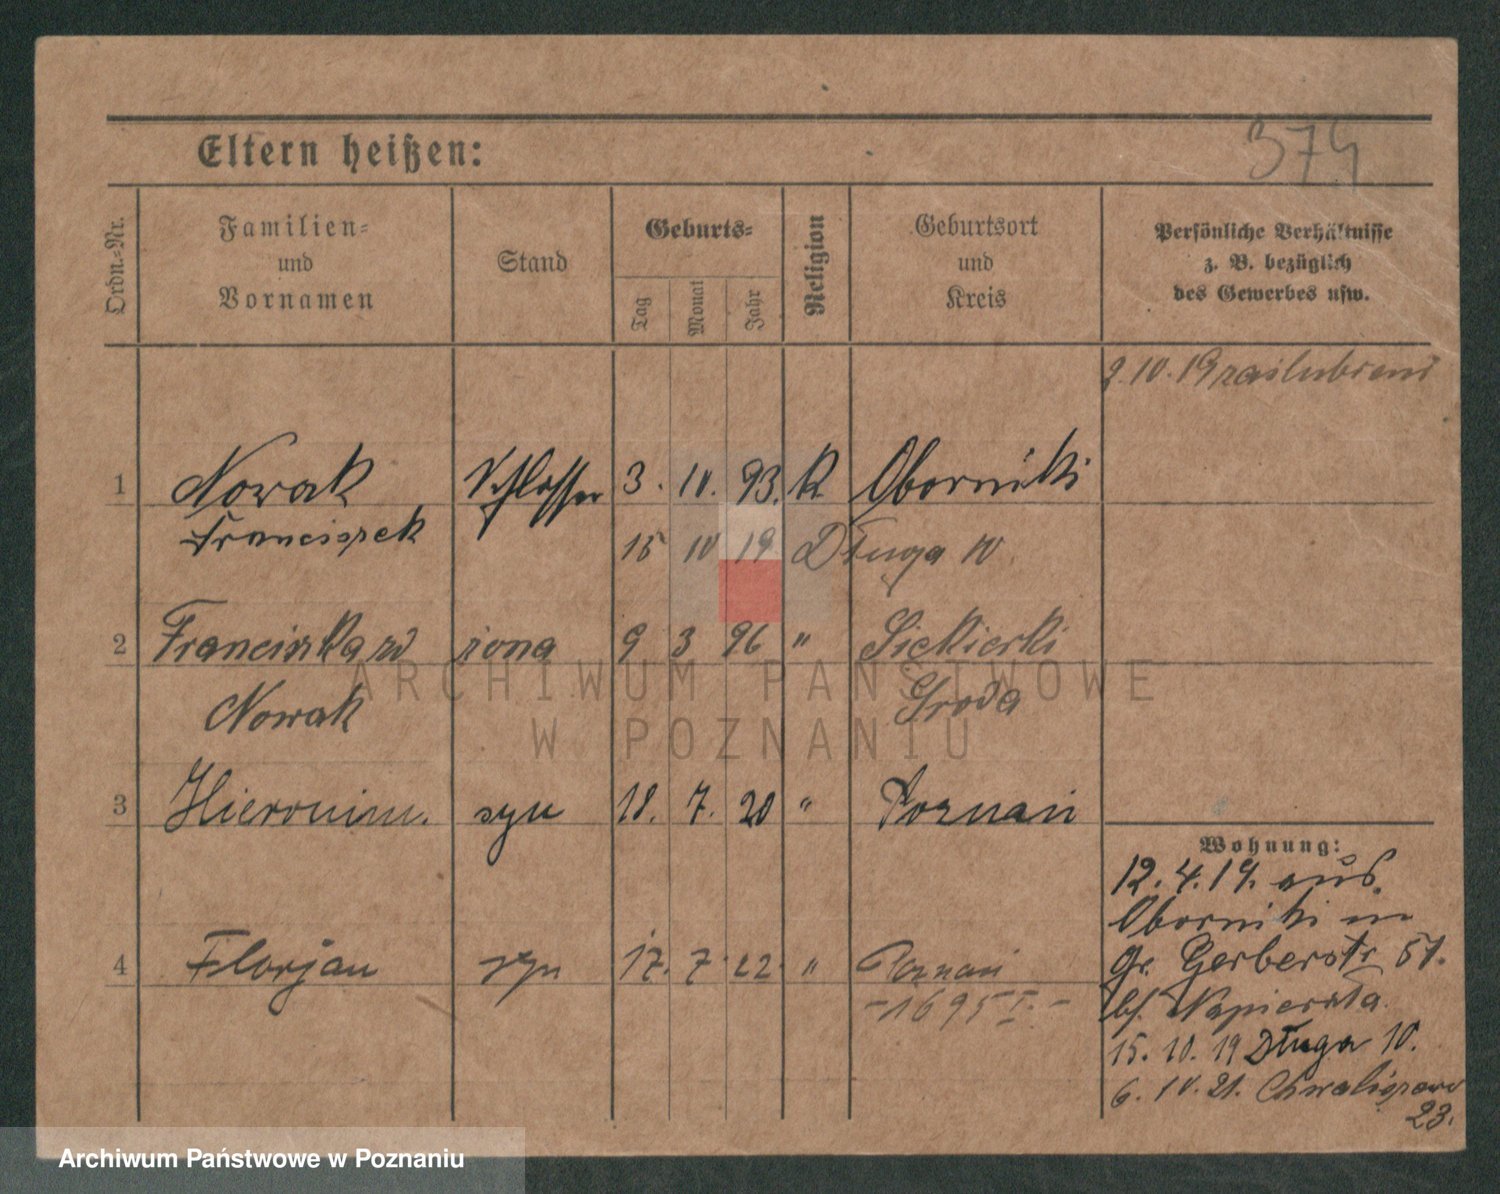 374
Eltern heißen:
Ordn.-Nr.
Familien- und Vornamen
Stand
Geburts-
Tag
Monat
Jahr
Religion
Geburtsort und Kreis
Persönliche Verhältnisse
z. B. bezüglich
des Gewerbes usw.
2.10.19 zaślubieni
1 Nowak Schlosser 3. 10. 93. K Oborniki
Franciszek
15 10 19 Długa 10
2 Franciszka żona 9 3 96 " Siekierki
Nowak Środa
3 Hieronim. syn 18. 7. 20 " Poznań
4 Florjan syn 17. 7. 22. " Poznań
-1695 I.-
Wohnung:
12.4.19. aus
Oborniki in
Gr. Gerberstr 51.
bei Napierała
15. 10. 19 Długa 10.
6. 10. 21. Chwaliszewo
23.
ARCHIWUM PAŃSTWOWE
W POZNANIU
Archiwum Państwowe w Poznaniu